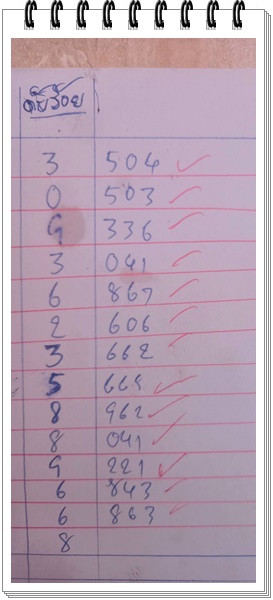 ดับร้อย
3 504 ✓
0 503 ✓
9 336 ✓
3 041 ✓
6 867 ✓
2 606 ✓
3 662 ✓
5 ✓
8 962 ✓
8 041 ✓
9 221 ✓
6 843 ✓
6 863 ✓
8